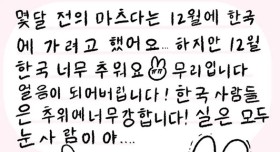 몇달 전의 마츠다는 12월에 한국
에 가려고 했어요... 하지만 12월
한국 너무 추워요 무리입니다
얼음이 되어버립니다! 한국 사람들
은 추위에 너무 강합니다! 실은 모두
눈사람이야....